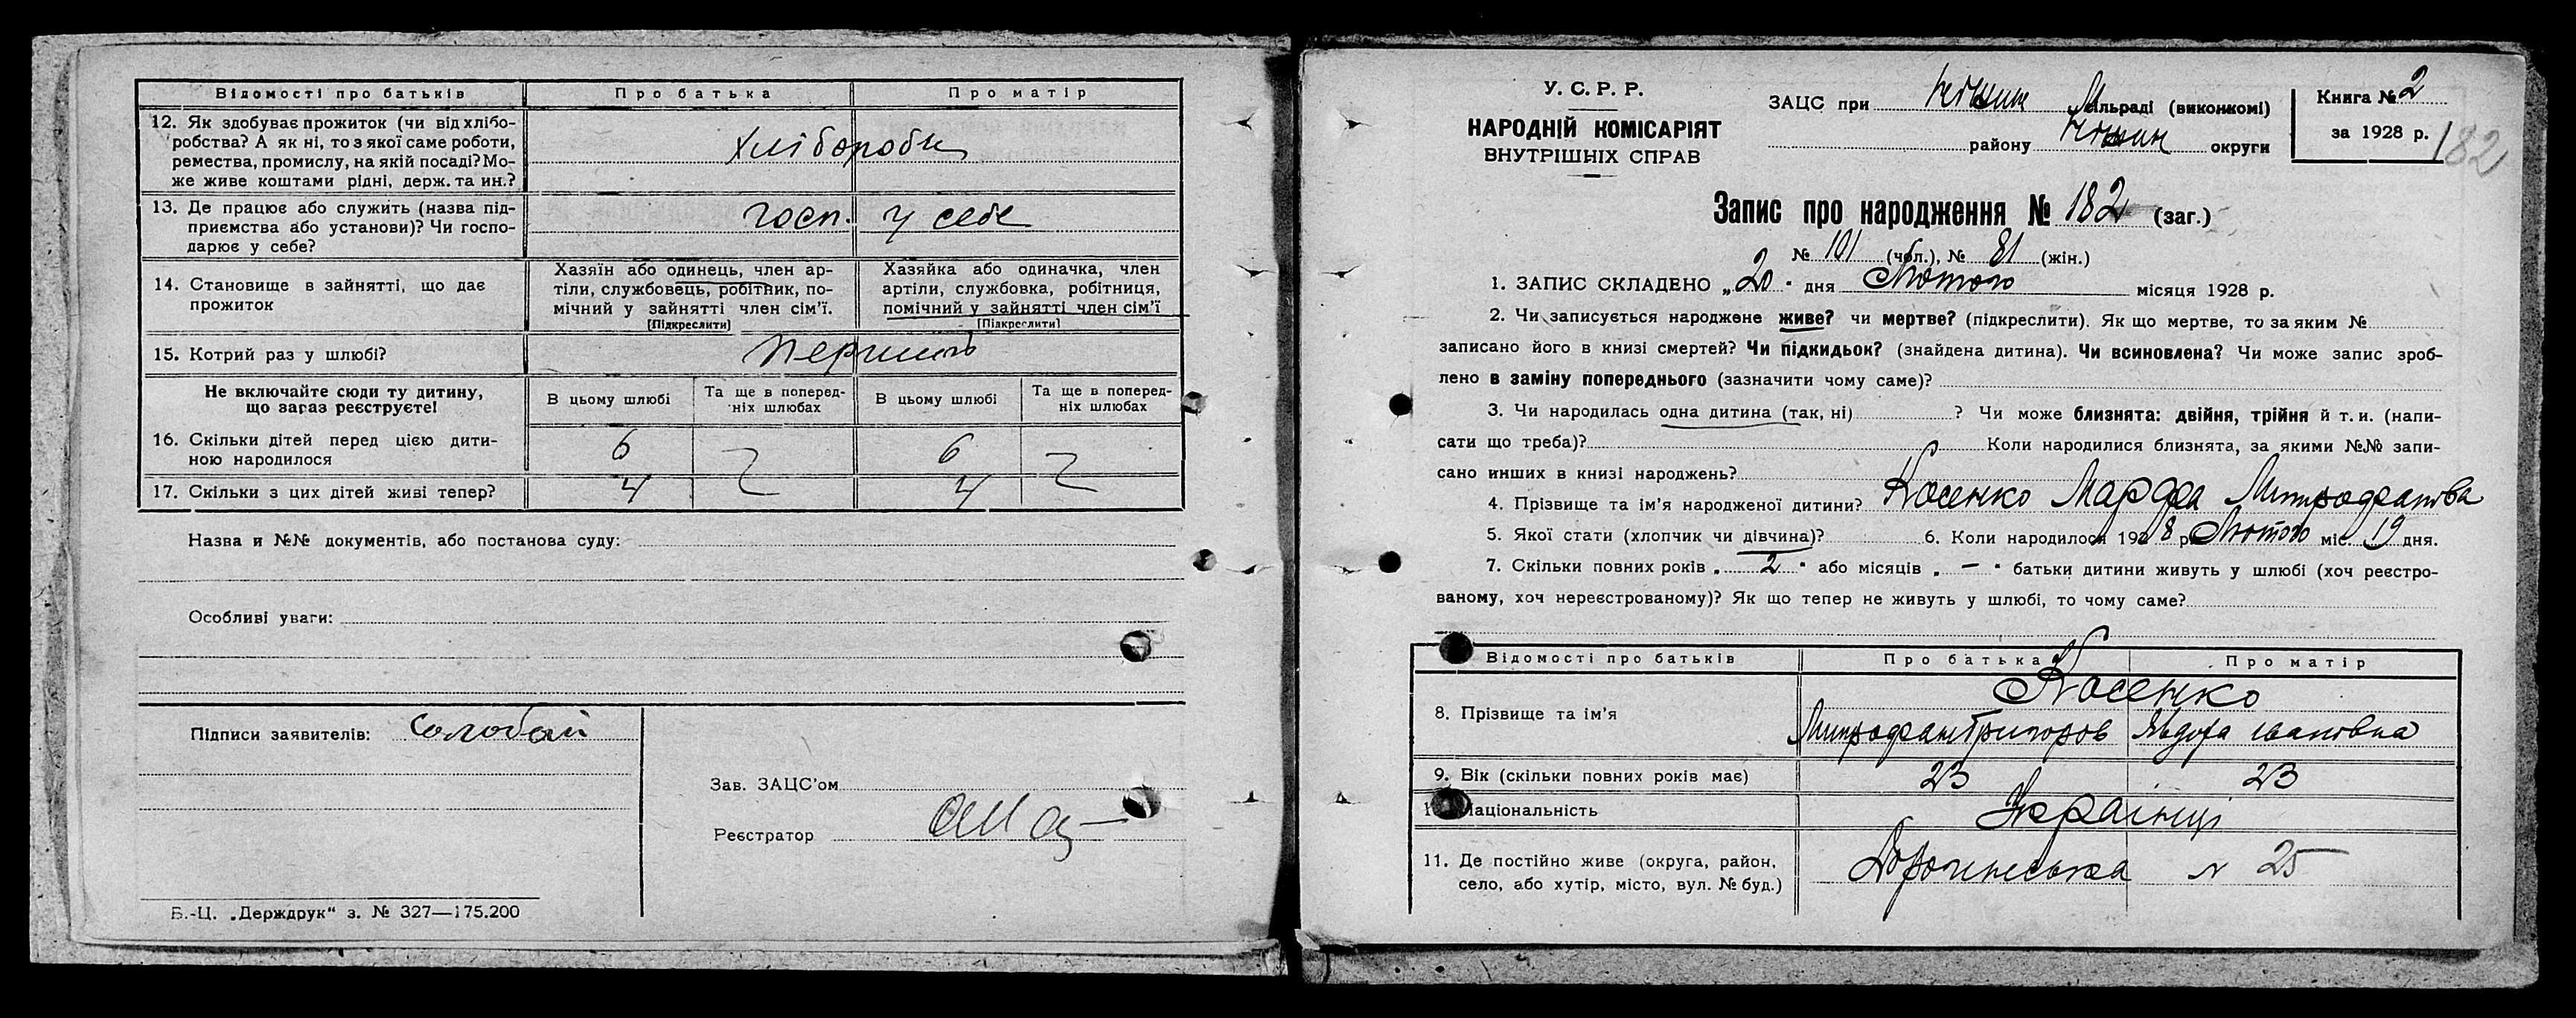 Відомості про батьків Про батька Про матір
12. Як здобуває прожиток (чи від хлібо-
робства? А як ні, то з якої саме роботи,
ремества, промислу, на якій посаді? Мо-
же живе коштами рідні, держ. та ин.?
хлібороби
13. Де працює або служить (назва під-
приємства або установи)? Чи госпо-
дарює у себе?
госп. у себе
14. Становище в зайнятті, що дає
прожиток
Хазяїн або одинець, член ар-
тіли, службовець, робітник, по-
мічний у зайнятті член сім'ї.
[Підкреслити]
Хазяйка або одиначка, член
артіли, службовка, робітниця,
помічний у зайнятті член сім'ї
[Підкреслити]
15. Котрий раз у шлюбі?
Не включайте сюди ту дитину,
що загаз реєструєте!
В цьому шлюбі
Та ще в поперед-
ніх шлюбах
В цьому шлюбі
Та ще в поперед-
ніх шлюбах
16. Скільки дітей перед цією дити-
ною народилося
6 6
17. Скільки з цих дітей живі тепер? 4 4
Назва и №№ документів, або постанова суду:
Особливі уваги:
Підписи заявителів:
Зав. ЗАЦС'ом
Реєстратор
Б.-Ц. „Держдрук“ з. № 327—175.200
У. С. Р. Р.
НАРОДНІЙ КОМІСАРІЯТ
ВНУТРІШНІХ СПРАВ
ЗАЦС при Ніжин М сільраді (виконкомі)
району Ніжин округи
Книга № 2
за 1928 р.
182
Запис про народження № 182 (заг.)
№ 101 (чол.), № 81 (жін.)
1. ЗАПИС СКЛАДЕНО „20“ дня Лютого місяця 1928 р.
2. Чи записується народжене живе? чи мертве? (підкреслити). Як що мертве, то за яким №
записано його в книзі смертей? Чи підкидьок? (знайдена дитина). Чи всиновлена? Чи може запис зроб-
лено в заміну попереднього (зазначити чому саме)?
3. Чи народилась одна дитина (так, ні) ? Чи може близнята: двійня, трійня й т. и. (напи-
сати що треба)? Коли народилися близнята, за якими №№ запи-
сано инших в книзі народжень?
4. Прізвище та ім'я народженої дитини? Косенко Марфа Митрофанова
5. Якої стати (хлопчик чи дівчина)? 6. Коли народилося 1928 р. Лютого міс. 19 дня.
7. Скільки повних років „ 2 “ або місяців „ — “ батьки дитини живуть у шлюбі (хоч реєстро-
ваному, хоч нереєстрованому)? Як що тепер не живуть у шлюбі, то чому саме?
Відомості про батьків Про батька Про матір
Косенко
8. Прізвище та ім'я Митрофан Григоров Явдоха Івановна
9. Вік (скільки повних років має) 23 23
Національність Українці
11. Де постійно живе (округа, район,
село, або хутір, місто, вул. № буд.)
№ 25